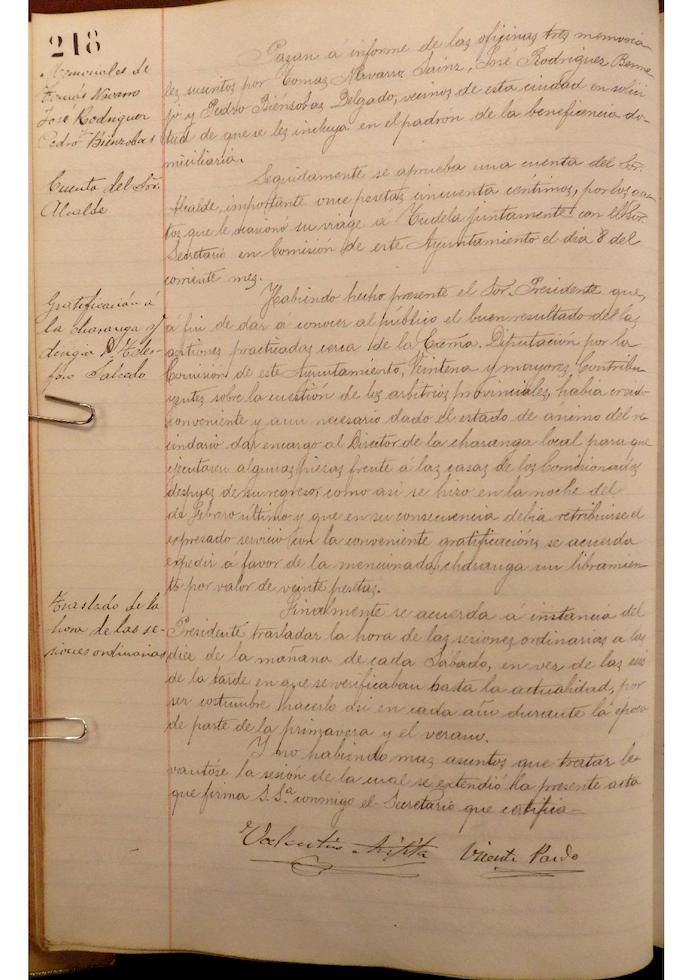 218
Memoriales de
Tomás Navarro
José Rodriguez
Pedro Bienzobas
Pasan á informe de las oficinas tres memoria-
les suscritos por Tomas Navarro Sainz, José Rodriguez Berme-
jo y Pedro Bienzobas Delgado, vecinos de esta ciudad en solici-
tud de que se les incluya en el padron de la beneficencia do-
miciliaria.
Cuenta del Sor.
Alcalde
Seguidamente se aprueba una cuenta del Sor.
Alcalde, importante once pesetas cincuenta centimos, por los gas-
tos que le ocasionó su viage a Tudela juntamente con el Sor.
Secretario en Comisión de este Ayuntamiento el dia 8 del
corriente mes.
Gratificación á
la charanga y
dirigia D. Teles-
foro Salcedo
Habiendo hecho presente el Sor. Presidente que,
á fin de dar á conocer al público el buen resultado de las
gestiones practicadas cerca de la Excma. Diputación por la
Comisión de este Ayuntamiento, Veintena y mayores Contribu-
yentes sobre la cuestión de los arbitrios provinciales, habia creido
conveniente y aun necesario dado el estado de ánimo del ve-
cindario dar encargo al Director de la charanga local para que
ejecutaran algunas piezas frente á las casas de los Comisionados
despues de su regreso, como asi se hizo en la noche del
de Febrero último y que en su consecuencia debia retribuirse el
expresado servicio con la conveniente gratificación, se acuerda
expedir á favor de la mencionada charanga un libramien-
to por valor de veinte pesetas.
Traslado de la
hora de las se-
siones ordinarias
Finalmente se acuerda á instancia del
Presidente trasladar la hora de las sesiones ordinarias a las
diez de la mañana de cada Sábado, en vez de las seis
de la tarde en que se verificaban hasta la actualidad, por
ser costumbre hacerlo asi en cada año durante la epoca
de parte de la primavera y el verano.
Y no habiendo mas asuntos que tratar le-
vantóse la sesión de la cual se extendió la presente acta
que firma S.Sª. conmigo el Secretario que certifica-
Valentin Vicente Pardo